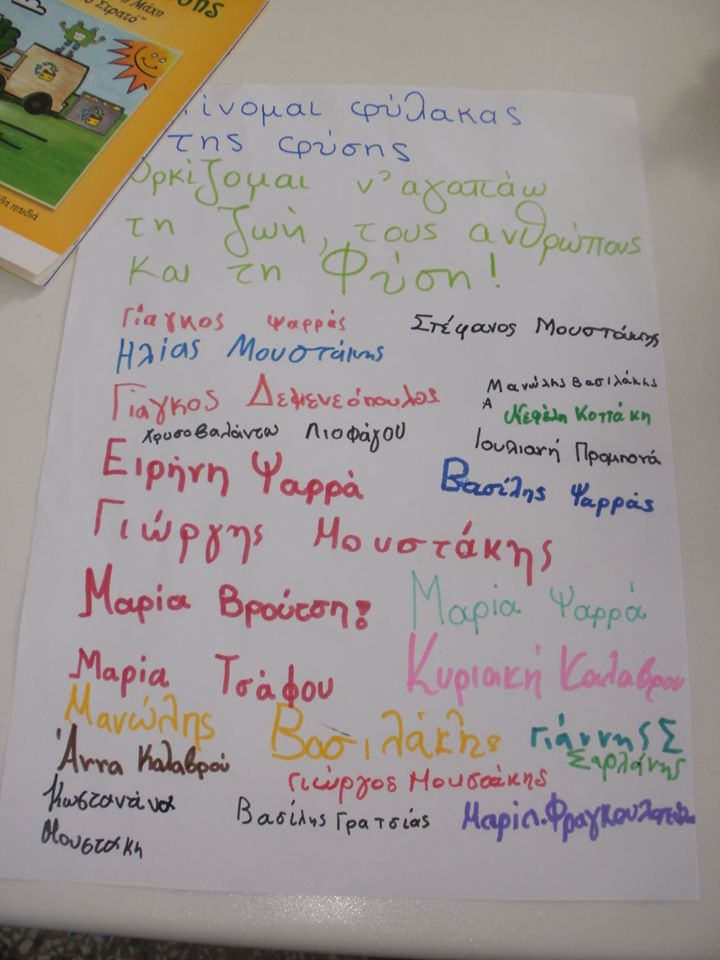 σης
Μάχη
Στρατό"
για παιδιά
Γίνομαι φύλακας
της φύσης
Ορκίζομαι ν' αγαπάω
τη ζωή, τους ανθρώπους
και τη Φύση!
Γιάγκος Ψαρράς Στέφανος Μουστάκης
Ηλίας Μουστάκης
Γιάγκος Δεμενεόπουλος Μανώλης Βασιλάκης
Α Νεφέλη Κοττάκη
Χρυσοβαλάντω Λιοφάγου Ιουλιανή Προμπονά
Ειρήνη Ψαρρά Βασίλης Ψαρράς
Γιώργης Μουστάκης
Μαρία Βρούτση! Μαρία Ψαρρά
Μαρία Τσάφου Κυριακή Καλαβρου
Μανώλης Βασιλάκης Γιάννης Σ
Σαρλάνης
Άννα Καλαβρού Γιώργος Μουστάκης
Κωσταντίνα Βασίλης Γρατσίας Μαρία.Φραγκουλοπούλου
Μουστάκη